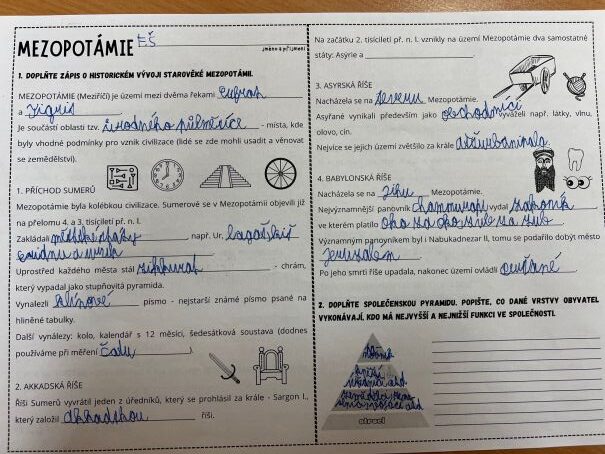 MEZOPOTÁMIE EŠ
jméno a příjmení
1. DOPLŇTE ZÁPIS O HISTORICKÉM VÝVOJI STAROVĚKÉ MEZOPOTÁMII.
MEZOPOTÁMIE (Meziříčí) je území mezi dvěma řekami Eufrat
a Tigris.
Je součástí oblasti tzv. úrodného půlměsíce - místa, kde
byly vhodné podmínky pro vznik civilizace (lidé se zde mohli usadit a věnovat
se zemědělství).
1. PŘÍCHOD SUMERŮ
Mezopotámie byla kolébkou civilizace. Sumerové se v Mezopotámii objevili již
na přelomu 4. a 3. tisíciletí př. n. l.
Zakládali městské státy např. Ur, Lagaš, Kiš
Eridu a Uruk
Uprostřed každého města stál zikkurat - chrám,
který vypadal jako stupňovitá pyramida.
Vynalezli klínové písmo - nejstarší známé písmo psané na
hliněné tabulky.
Další vynálezy: kolo, kalendář s 12 měsíci, šedesátková soustava (dodnes
používáme při měření času).
2. AKKADSKÁ ŘÍŠE
Říši Sumerů vyvrátil jeden z úředníků, který se prohlásil za krále - Sargon I.,
který založil akkadskou říši.
Na začátku 2. tisíciletí př. n. l. vznikly na území Mezopotámie dva samostatné
státy: Asýrie a
3. ASYRSKÁ ŘÍŠE
Nacházela se na severu Mezopotámie.
Asyřané vynikali především jako obchodníci vyváželi např. látky, vlnu,
olovo, cín.
Nejvíce se jejich území zvětšilo za krále Aššurbanipala
4. BABYLONSKÁ ŘÍŠE
Nacházela se na jihu Mezopotámie.
Nejvýznamnější panovník Chammurapi vydal zákoník
ve kterém platilo oko za oko zub za zub
Významným panovníkem byl i Nabukadnezar II, tomu se podařilo dobýt město
Jeruzalem
Po jeho smrti říše upadala, nakonec území ovládli
2. DOPLŇTE SPOLEČENSKOU PYRAMIDU. POPIŠTE, CO DANÉ VRSTVY OBYVATEL
VYKONÁVAJÍ, KDO MÁ NEJVYŠŠÍ A NEJNIŽŠÍ FUNKCI VE SPOLEČNOSTI.
otroci